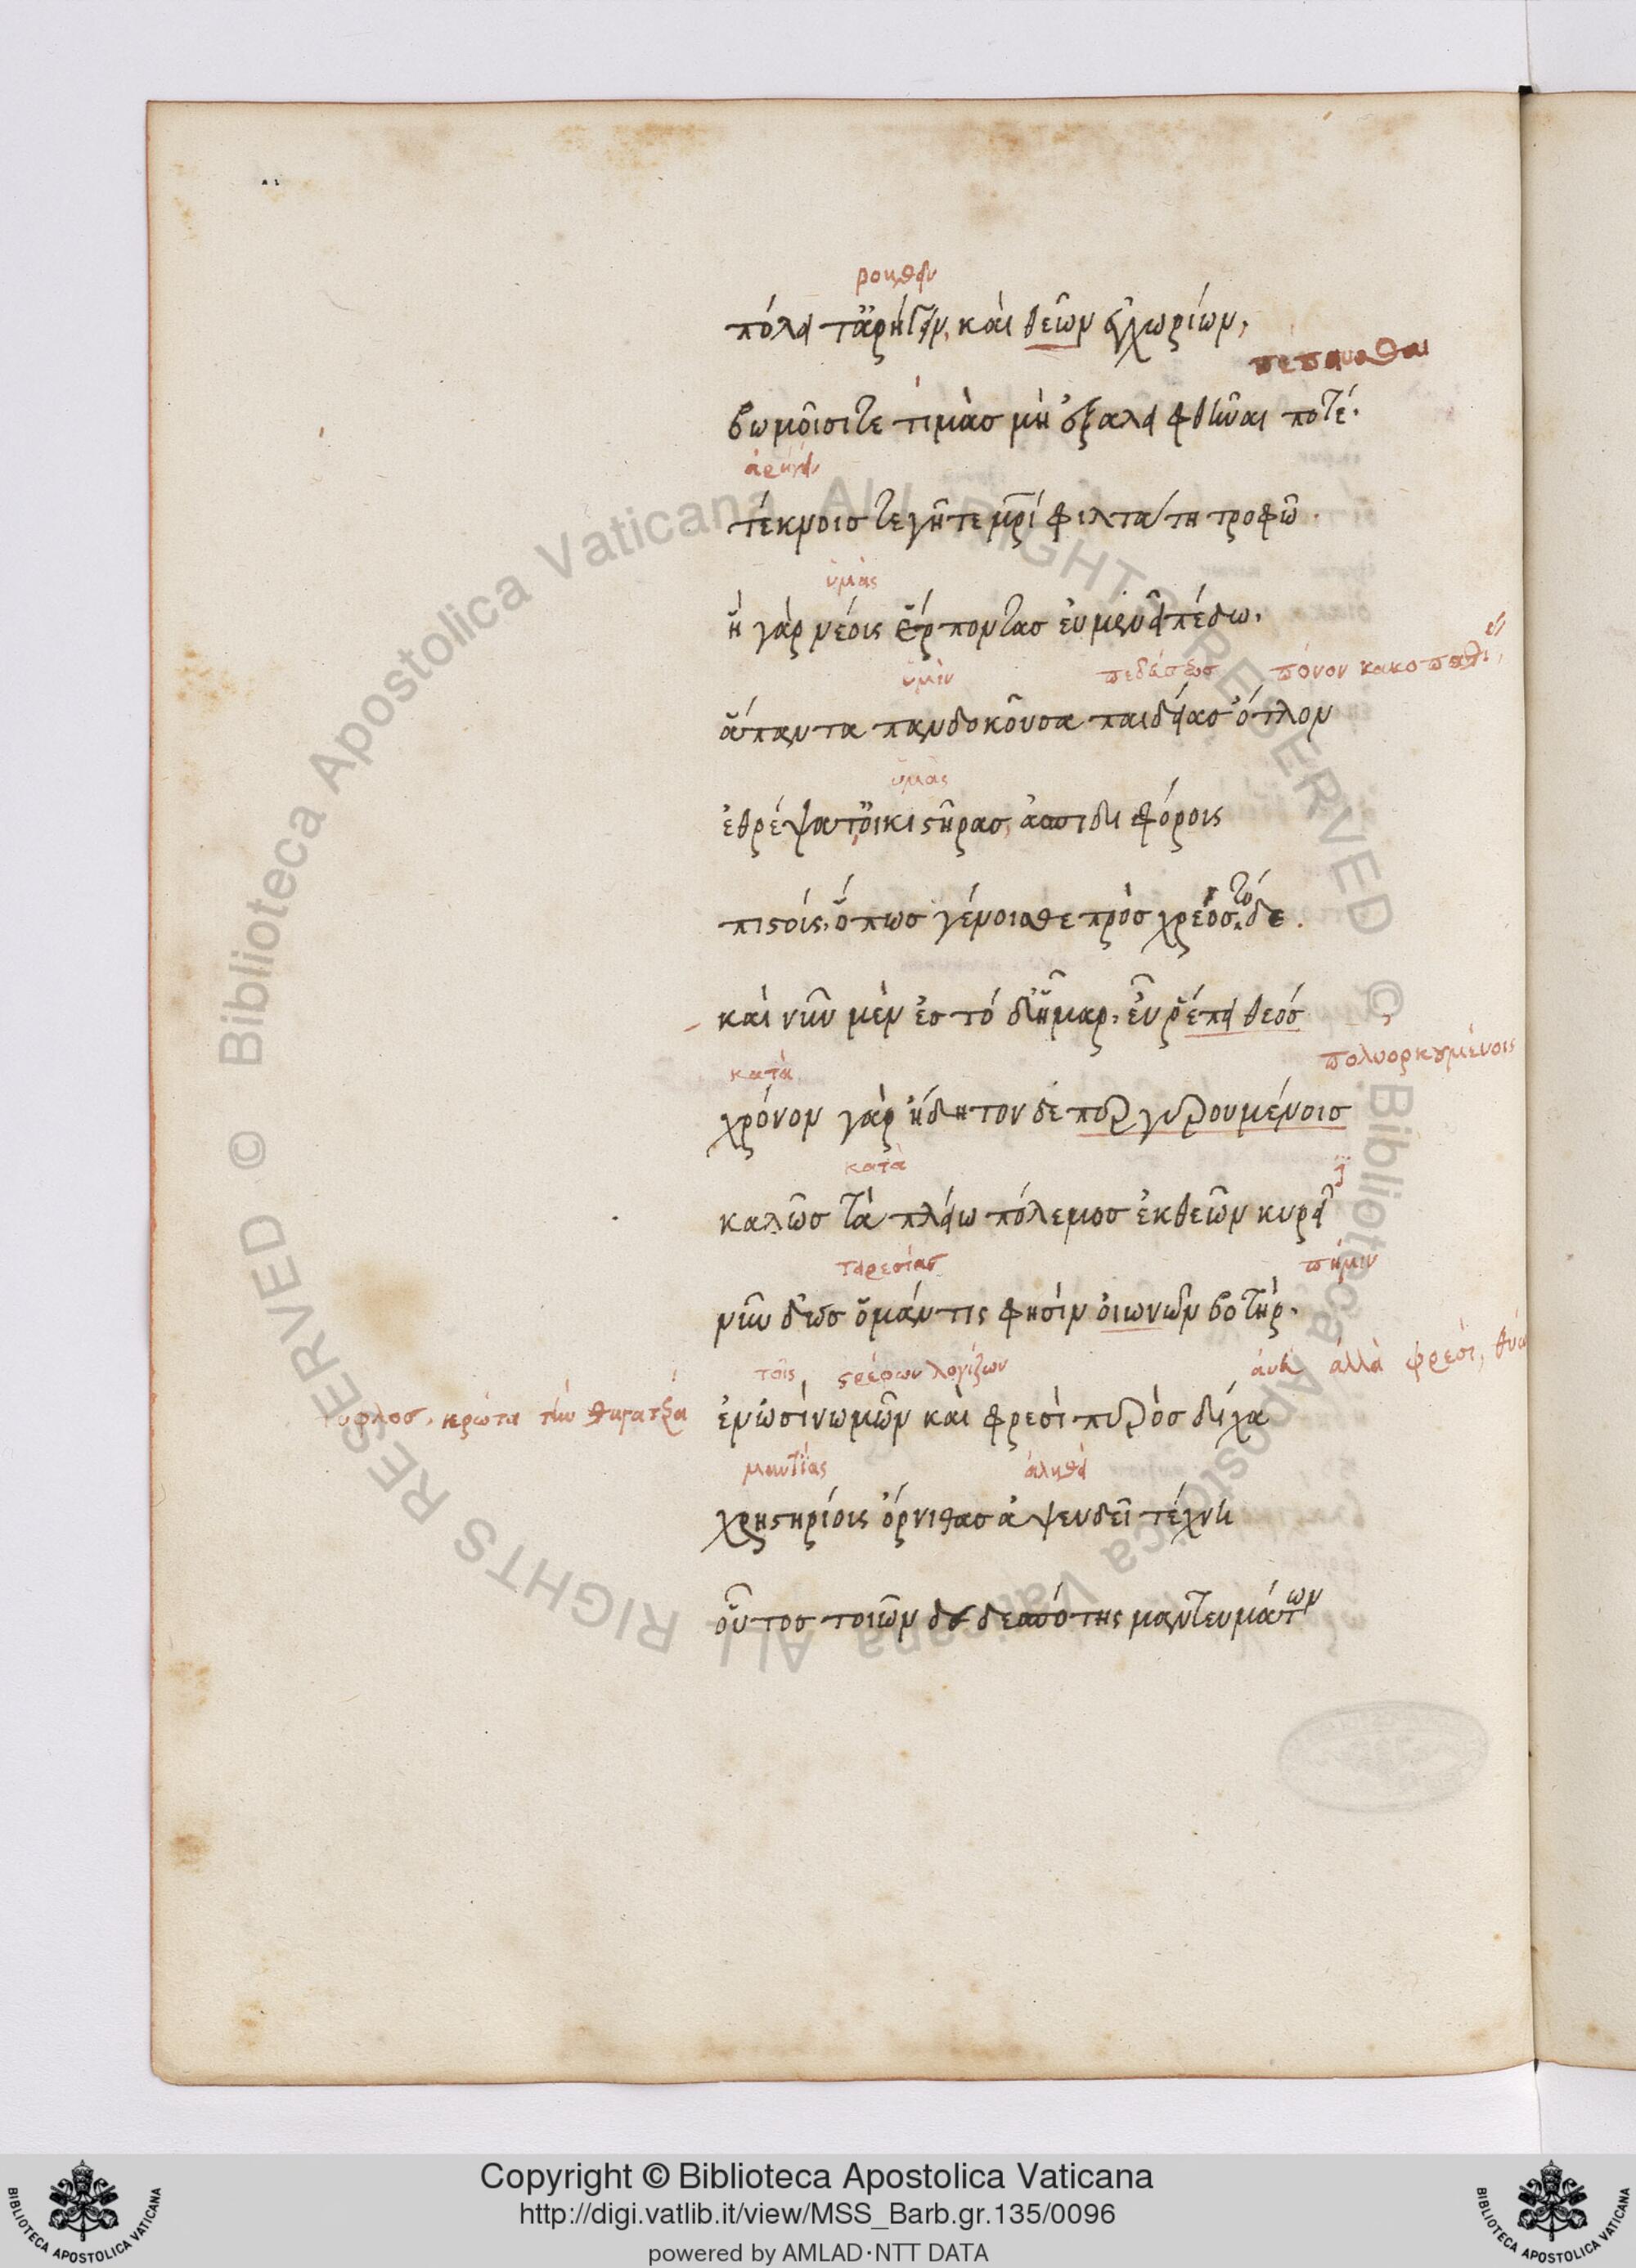 βοηθεῖν
πόλει τ' ἀρήγειν, καὶ θεῶν ἐγχωρίων,
πεπαῦσθαι
βωμοῖσι τε τιμὰσ μὴ ξαλειφθῆναι ποτέ.
ἀρήγειν
τέκνοισ τε γῆ τε μρὶ φιλτάτη τροφῶ.
ὑμᾶς
ἣ γὰρ νέοις ἕρποντασ εὐμενεῖ πέδω.
ὑμῖν πόνον
ἅπαντα πανδοκοῦσα παιδείασ ὄτλον
ὑμᾶς
ἐθρέψατ' οἰκιστῆρασ, ἀσπιδηφόροις
πιστοίς, ὅπωσ γένοισθε πρὸσ χρέοσ τόδε.
καὶ νῦν μὲν ἐσ τό δ' ἦμαρ, εὖ ῥέπει θεόσ
πολυορκουμένοις
κατὰ
χρόνον γὰρ ἤδη τον δὲ πυργηρουμένοισ
κατὰ
καλῶσ τὰ πλείω πόλεμοσ ἐκ θεῶν κυρεῖ
νῦν δ' ὡσ ὁ μάντις φησὶν οἰωνῶν βοτήρ.
τοῖς στρέφων λογίζων ἀλλὰ φρεσὶ,
ἠρώτα τὴν θυγατέρα
ἐν ὠσὶ νωμῶν καὶ φρεσὶ πυρὸσ δίχα
μαντείας ἀληθεῖ
χρηστηρίοις ὄρνιθασ ἀψευδεῖ τέχνη
οὗτοσ τοιῶν δε δεσπότης μαντευμάτων
Copyright © Biblioteca Apostolica Vaticana
http://digi.vatlib.it/view/MSS_Barb.gr.135/0096
powered by AMLAD·NTT DATA
BIBLIOTECA APOSTOLICA VATICANA
BIBLIOTECA APOSTOLICA VATICANA
© Biblioteca Apostolica Vaticana ALL RIGHTS RESERVED © Biblioteca Apostolica Vaticana ALL RIGHTS RESERVED